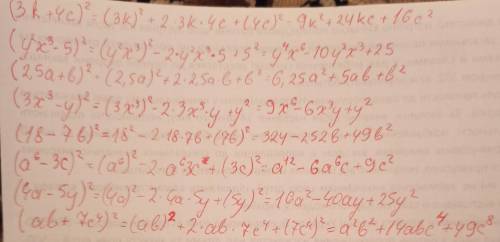 (3k+4c)²=(3k)²+2·3k·4c+(4c)²-9k²+24kc+16c²
(y²x³-5)²=(y²x³)²-2·y²x³·5+5²=y⁴x⁶-10y²x³+25
(2,5a+b)²=(2,5a)²+2·2,5ab+b²=6,25a²+5ab+b²
(3x³-y)²=(3x³)²-2·3x³·y+y²=9x⁶-6x³y+y²
(18-7b)²=18²-2·18·7b+(7b)²=324-252b+49b²
(a⁶-3c)²=(a⁶)²-2·a⁶·3c+(3c)²=a¹²-6a⁶c+9c²
(4a-5y)²=(4a)²-2·4a·5y+(5y)²=16a²-40ay+25y²
(ab+7c⁴)²=(ab)²+2·ab·7c⁴+(7c⁴)²=a²b²+14abc⁴+49c⁸